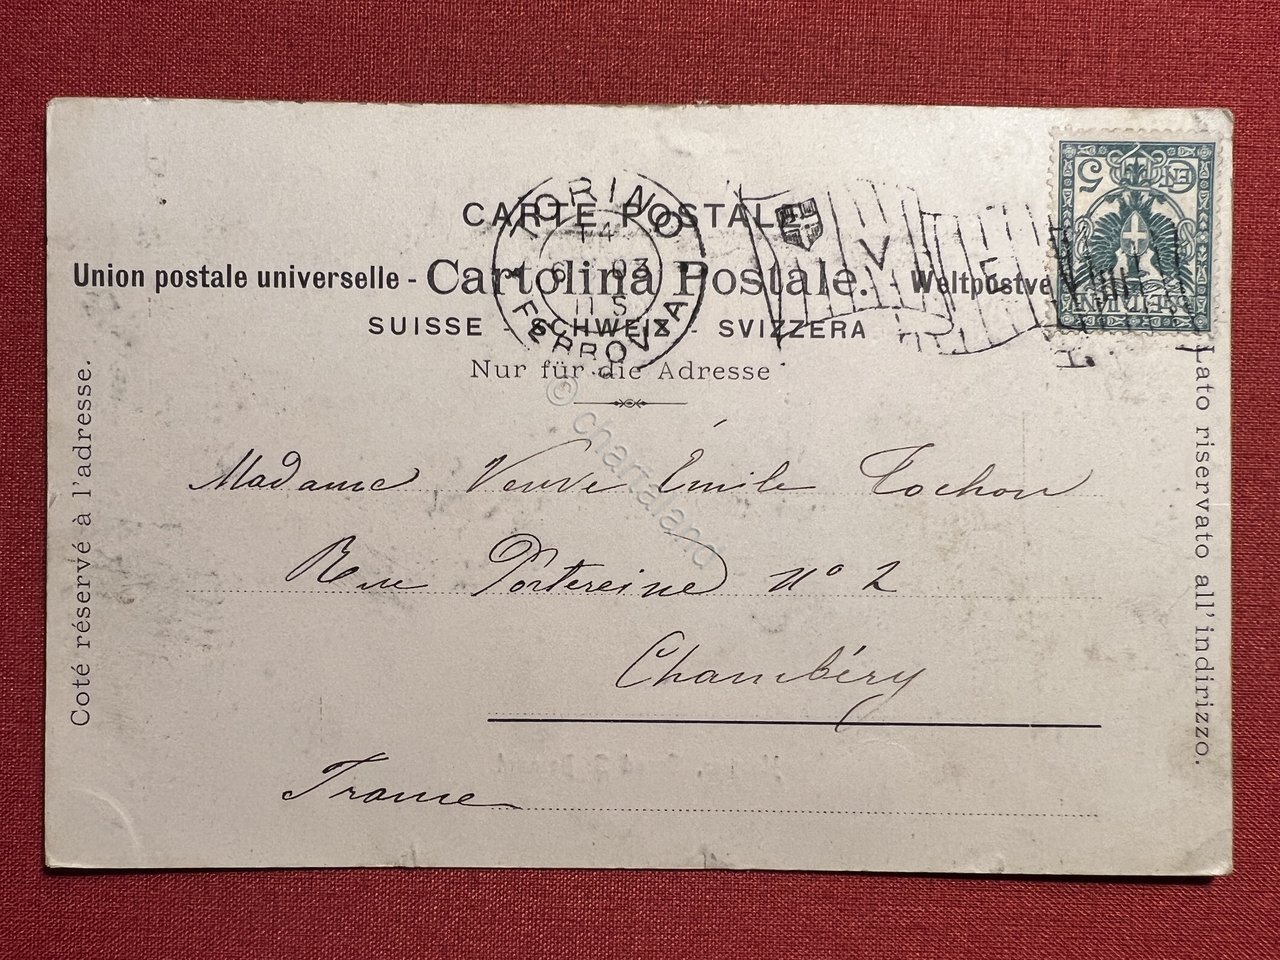 CARTE POSTALE
Union postale universelle - Cartolina Postale. - Weltpostve
SUISSE - SCHWEIZ - SVIZZERA
Nur für die Adresse
Coté réservé à l'adresse.
Lato riservato all'indirizzo.
TORINO
14
6 03
11 S
FERROVIA
V E
CENT. 5
© chartaland
Madame Veuve Émile Tochon
Rue Portereine No 2
Chambéry
France